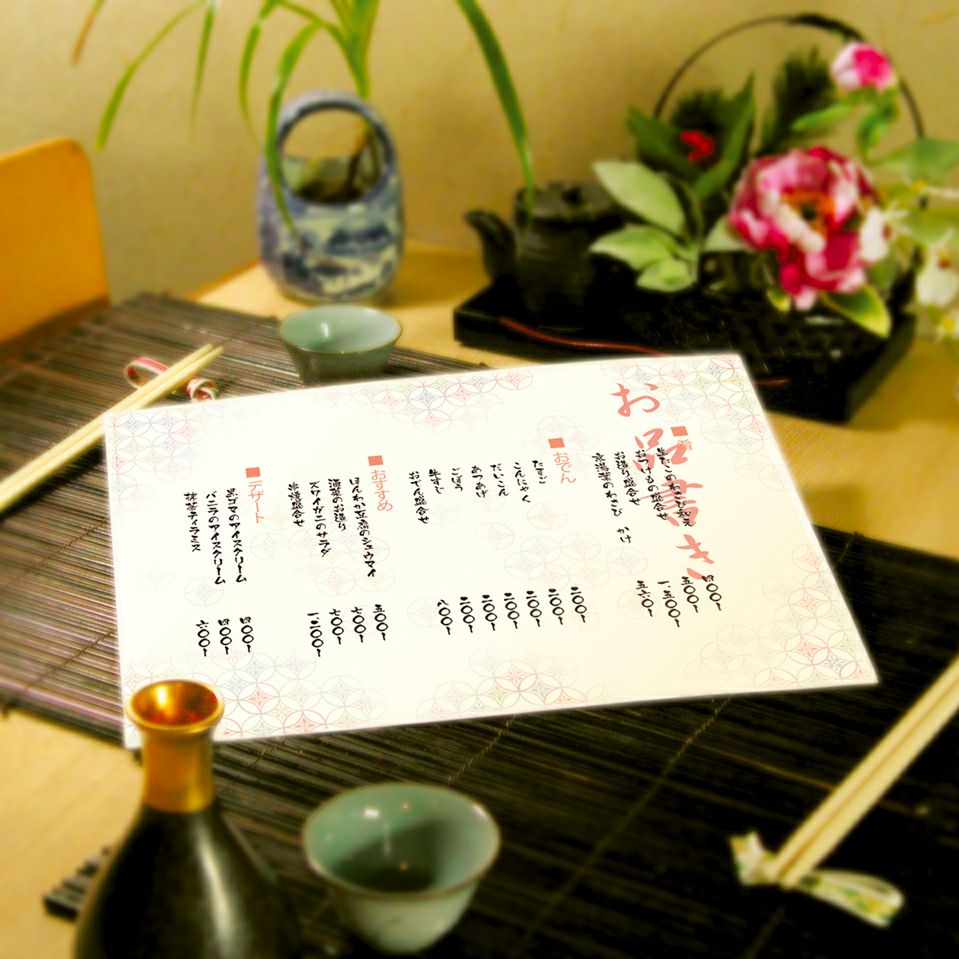 お品書き
肴
生たこのわさび和え 四〇〇〜
おつけもの盛合せ 五〇〇〜
お造り盛合せ 一、五〇〇〜
五六〇〜
おでん
たまご 二〇〇〜
こんにゃく 二〇〇〜
だいこん 二〇〇〜
あつあげ 二〇〇〜
ごぼう 二〇〇〜
牛すじ 二〇〇〜
おでん盛合せ 八〇〇〜
おすすめ
ほんわか豆腐のシュウマイ 五〇〇〜
海藻のお造り 七〇〇〜
ズワイガニのサラダ 七〇〇〜
串焼盛合せ 一、二〇〇〜
デザート
黒ゴマのアイスクリーム 四〇〇〜
バニラのアイスクリーム 四〇〇〜
抹茶ティラミス 六〇〇〜